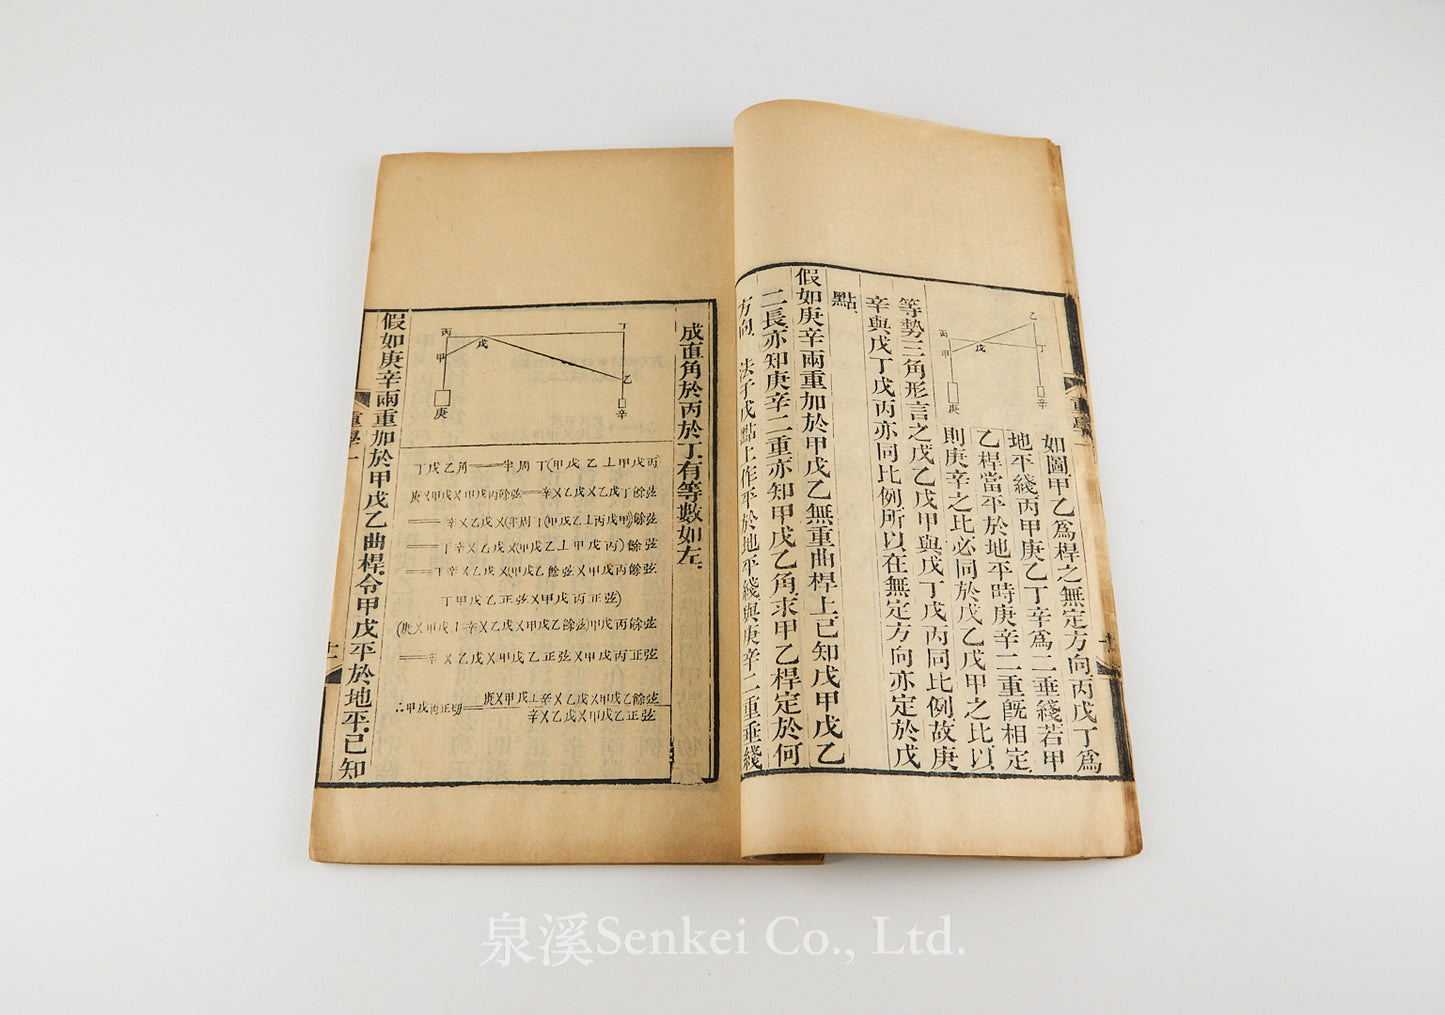 乙
丙
丁
戊
甲
庚
辛
如圖甲乙爲桿之無定方向丙戊丁爲
地平綫丙甲庚乙丁辛爲二垂綫若甲
乙桿當平於地平時庚辛二重旣相定
則庚辛之比必同於戊乙戊甲之比以
等勢三角形言之戊乙戊甲與戊丁戊丙同比例故庚
辛與戊丁戊丙亦同比例所以在無定方向亦定於戊
點
假如庚辛兩重加於甲戊乙無重曲桿上已知戊甲戊乙
二長亦知庚辛二重亦知甲戊乙角求甲乙桿定於何
方向 法于戊點上作平於地平綫與庚辛二重垂綫
重學
成直角於丙於丁有等數如左
丙
丁
戊
甲
乙
庚
辛
丁戊乙角══半周丅(甲戊乙丄甲戊丙)
庚乂甲戊乂甲戊丙餘弦══辛乂乙戊乂乙戊丁餘弦
══辛乂乙戊乂(半周丅(甲戊乙丄丙戊甲)餘弦
══丅辛乂乙戊乂(甲戊乙丄甲戊丙)餘弦
══丅辛乂乙戊乂(甲戊乙餘弦乂甲戊丙餘弦
丅甲戊乙正弦乂甲戊丙正弦)
(庚乂甲戊丄辛乂乙戊乂甲戊乙餘弦)甲戊丙餘弦
══辛乂乙戊乂甲戊乙正弦乂甲戊丙正弦
二甲戊丙正切══庚乂甲戊丄辛乂乙戊乂甲戊乙餘弦
辛乂乙戊乂甲戊乙正弦
假如庚辛兩重加於甲戊乙曲桿令甲戊平於地平已知
重學一
十一
泉溪Senkei Co., Ltd.